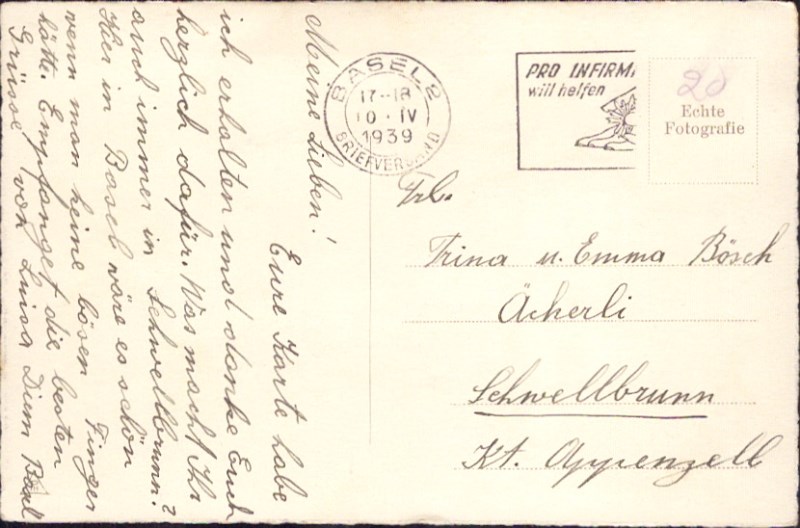 Meine Lieben!
Eure Karte habe
ich erhalten und danke Euch
herzlich dafür. Was macht Ihr
auch immer in Schwellbrunn?
Hier in Basel wäre es schön
wenn man keine bösen Finger
hätte. Empfanget die besten
Grüsse von Luisa Diem Basel
BASEL 2
17-18
10·IV
1939
BRIEFVERSAND
PRO INFIRM
will helfen
28
Echte
Fotografie
Frl.
Trina u. Emma Bösch
Ächerli
Schwellbrunn
Kt. Appenzell